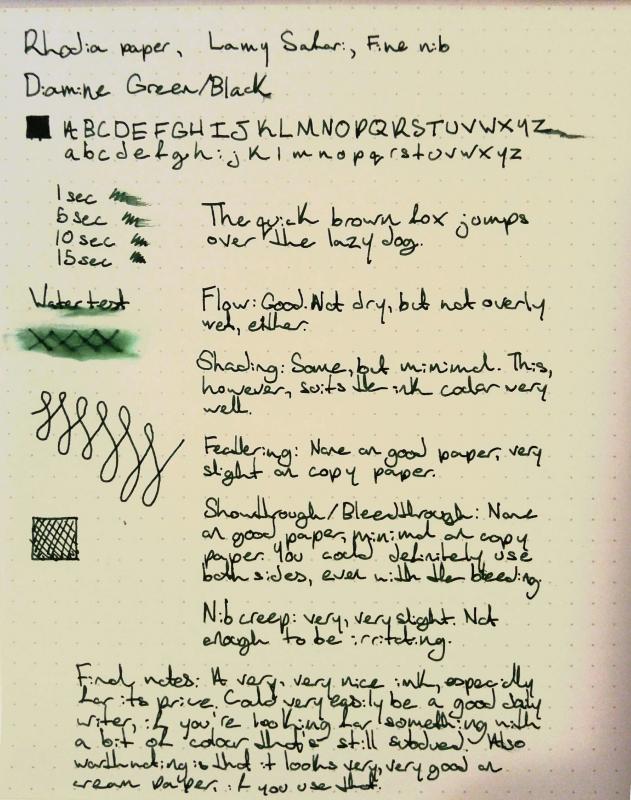 Rhodia paper, Lamy Safari, Fine nib
Diamine Green/Black
A B C D E F G H I J K L M N O P Q R S T U V W X Y Z
a b c d e f g h i j k l m n o p q r s t u v w x y z
1 sec
5 sec
10 sec
15 sec
The quick brown fox jumps
over the lazy dog.
Water test
Flow: Good. Not dry, but not overly
wet, either.
Shading: Some, but minimal. This,
however, suits the ink color very
well.
Feathering: None on good paper, very
slight on copy paper.
Showthrough/Bleedthrough: None
on good paper, minimal on copy
paper. You could definitely use
both sides, even with the bleeding.
Nib creep: very, very slight. Not
enough to be irritating.
Final notes: A very, very nice ink, especially
for its price. Could very easily be a good daily
writer, if you're looking for something with
a bit of colour that's still subdued. Also
worth noting is that it looks very, very good on
cream paper, if you use that.